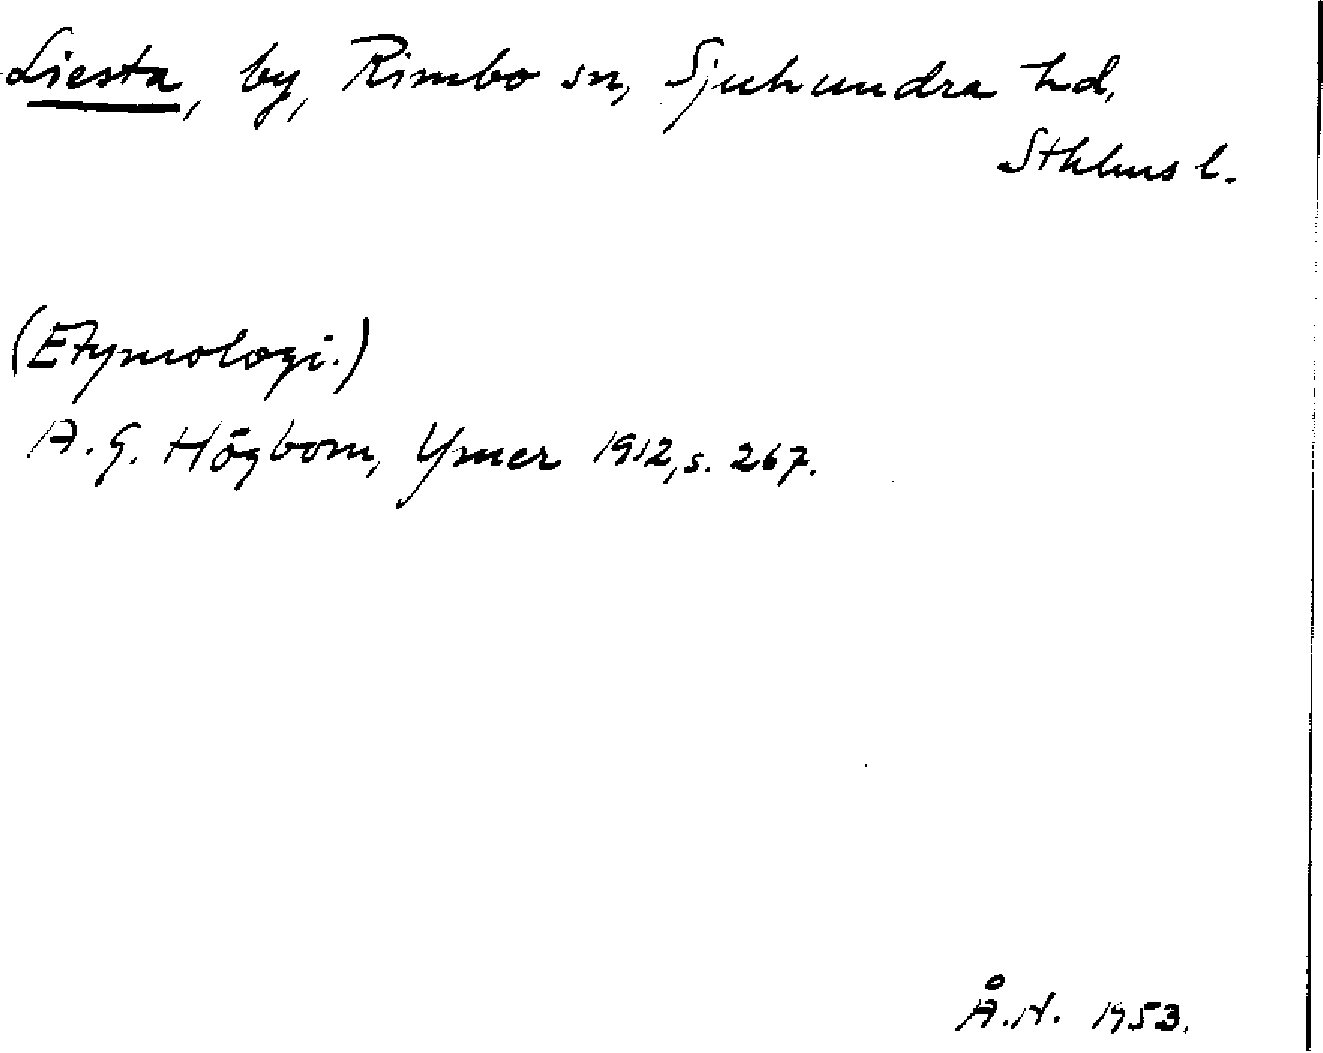 Liesta, by, Rimbo sn, Sjuhundra hd,
Sthlms l.
(Etymologi.)
A. G. Högbom, Ymer 1912, s. 267.
Å. N. 1953.